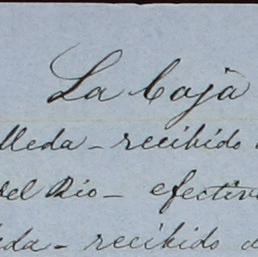 La Caja
lleda - recibido
del Rio - efectivo
da - recibido d